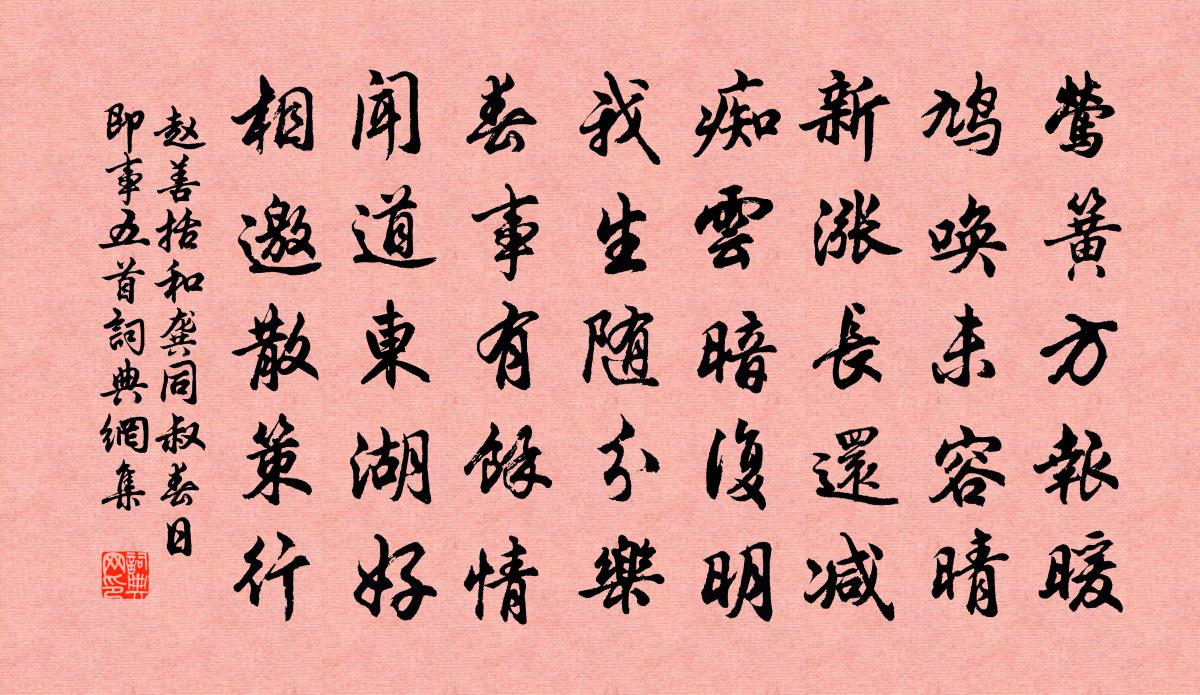 莺簧方報暖
鸠唤未容晴
新涨長還减
痴雲暗復明
我生随分樂
春事有餘情
闻道東湖好
相邀散策行
赵善括和龚同叔春日
即事五首詞典網集
詞典网印